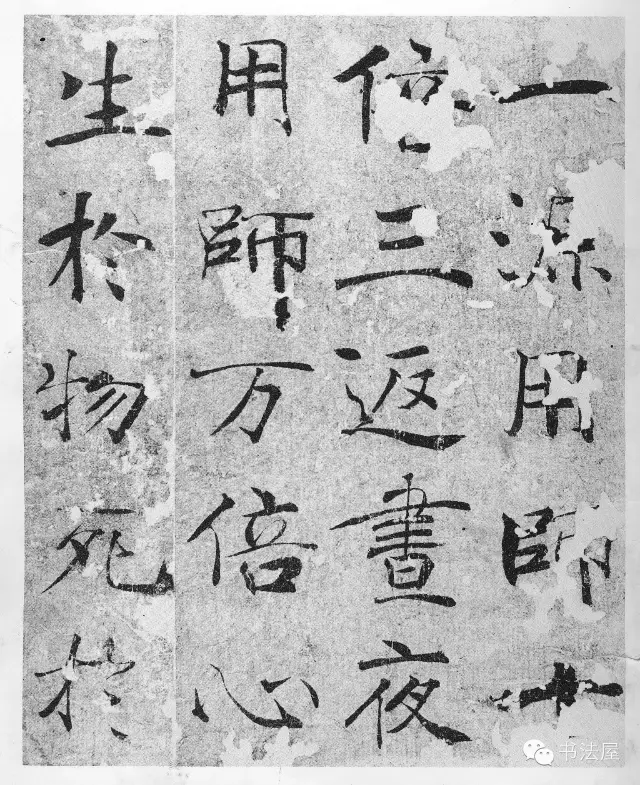 一源用師十
倍三返晝夜
用師万倍心
生於物死於
书法屋